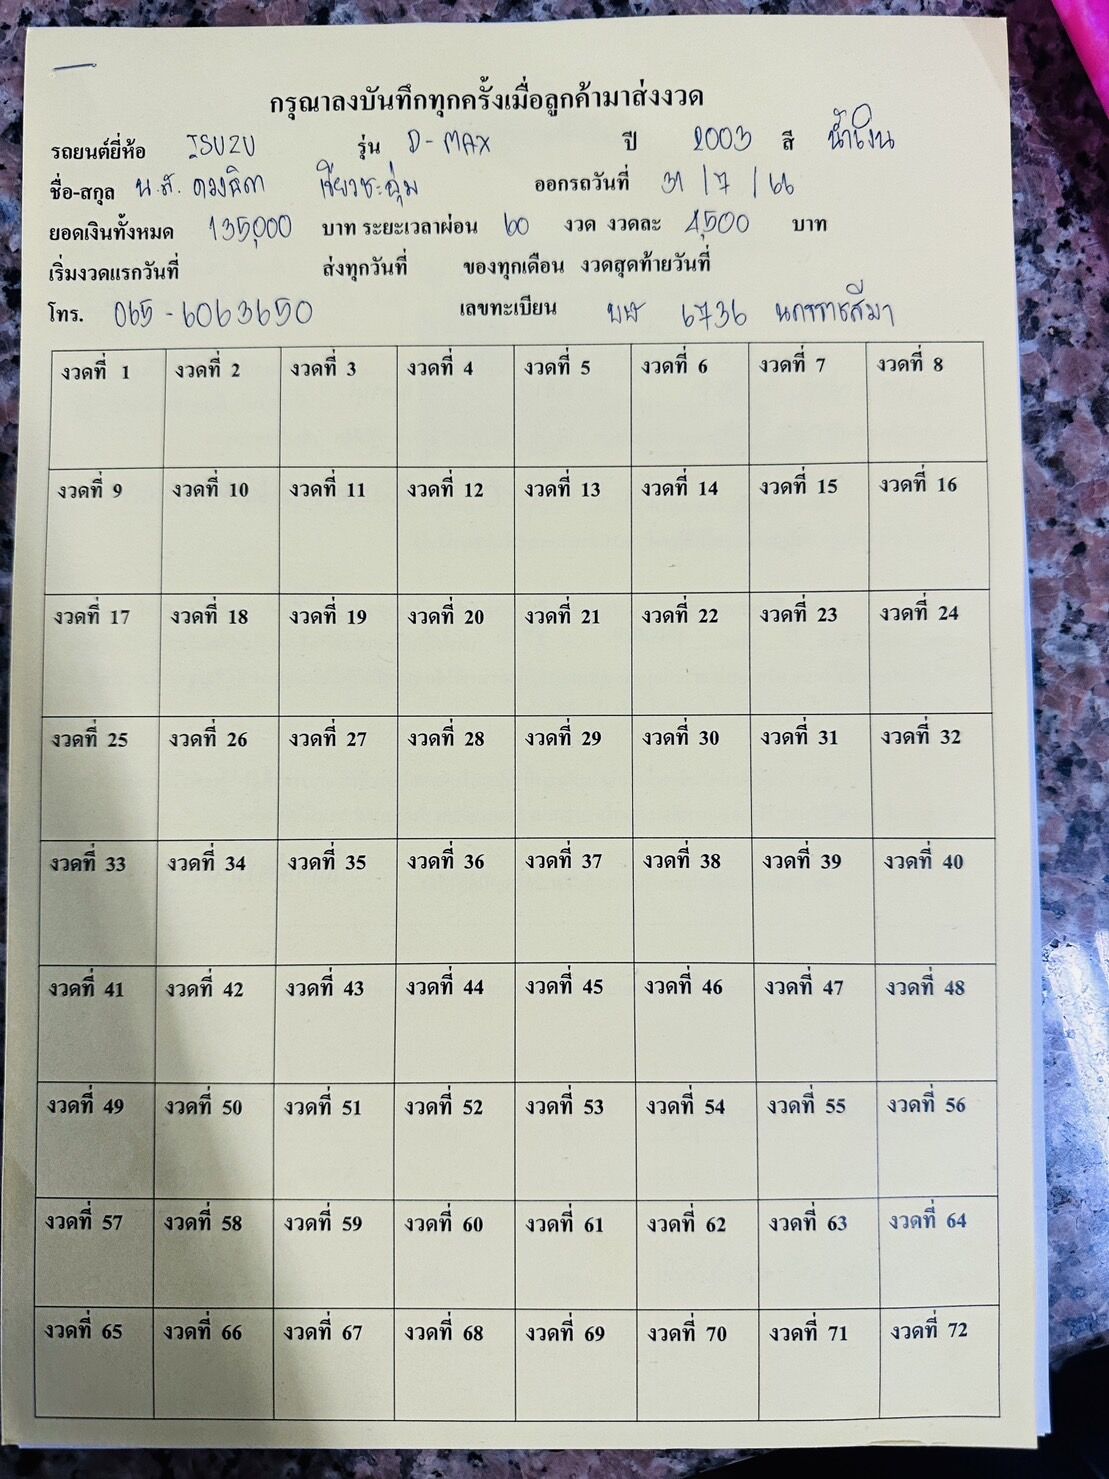 กรุณาลงบันทึกทุกครั้งเมื่อลูกค้ามาส่งงวด
รถยนต์ยี่ห้อ ISUZU รุ่น D-MAX ปี 2003 สี น้ำเงิน
ชื่อ-สกุล น.ส. ดวงธิดา เขียวชะอุ่ม ออกรถวันที่ 31/7/66
ยอดเงินทั้งหมด 135,000 บาท ระยะเวลาผ่อน 60 งวด งวดละ 4,500 บาท
เริ่มงวดแรกวันที่ ส่งทุกวันที่ ของทุกเดือน งวดสุดท้ายวันที่
โทร. 065-6063650 เลขทะเบียน 6736 นครราชสีมา
งวดที่ 1 งวดที่ 2 งวดที่ 3 งวดที่ 4 งวดที่ 5 งวดที่ 6 งวดที่ 7 งวดที่ 8
งวดที่ 9 งวดที่ 10 งวดที่ 11 งวดที่ 12 งวดที่ 13 งวดที่ 14 งวดที่ 15 งวดที่ 16
งวดที่ 17 งวดที่ 18 งวดที่ 19 งวดที่ 20 งวดที่ 21 งวดที่ 22 งวดที่ 23 งวดที่ 24
งวดที่ 25 งวดที่ 26 งวดที่ 27 งวดที่ 28 งวดที่ 29 งวดที่ 30 งวดที่ 31 งวดที่ 32
งวดที่ 33 งวดที่ 34 งวดที่ 35 งวดที่ 36 งวดที่ 37 งวดที่ 38 งวดที่ 39 งวดที่ 40
งวดที่ 41 งวดที่ 42 งวดที่ 43 งวดที่ 44 งวดที่ 45 งวดที่ 46 งวดที่ 47 งวดที่ 48
งวดที่ 49 งวดที่ 50 งวดที่ 51 งวดที่ 52 งวดที่ 53 งวดที่ 54 งวดที่ 55 งวดที่ 56
งวดที่ 57 งวดที่ 58 งวดที่ 59 งวดที่ 60 งวดที่ 61 งวดที่ 62 งวดที่ 63 งวดที่ 64
งวดที่ 65 งวดที่ 66 งวดที่ 67 งวดที่ 68 งวดที่ 69 งวดที่ 70 งวดที่ 71 งวดที่ 72